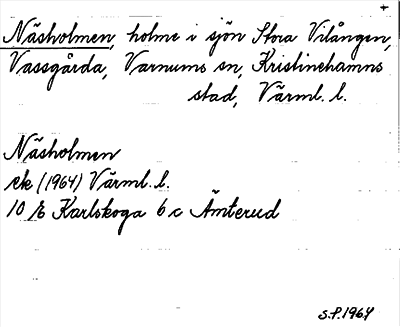 Näsholmen, holme i sjön Stora Vilången,
Vassgårda, Varnums sn, Kristinehamns
stad, Värml. l.
Näsholmen
ek (1964) Värml. l.
10 E Karlskoga 6 c Ämterud
S.P. 1964